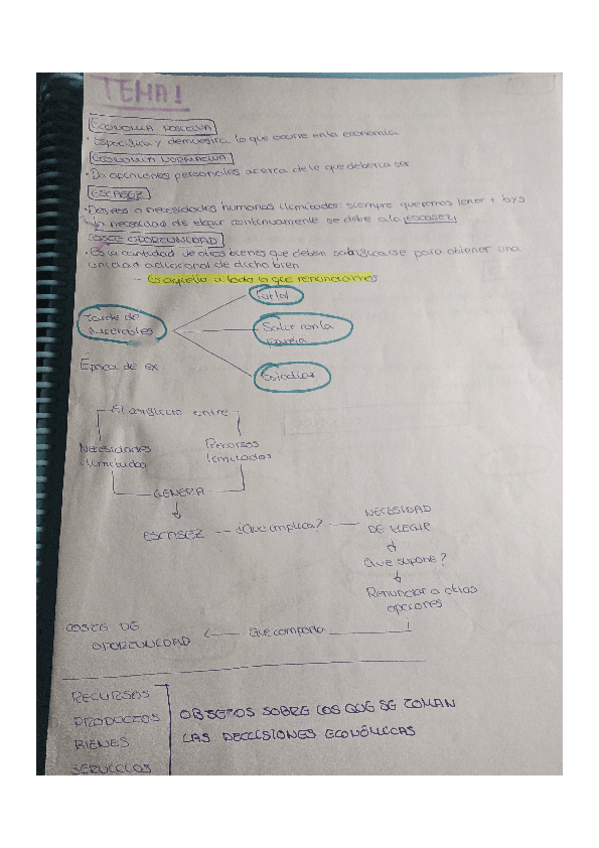 TEMA 1
ECONOMIA POSITIVA
• Especifica y demuestra lo que ocurre en la economia
ECONOMIA NORMATIVA
• Da opiniones personales acerca de lo que deberia ser
ESCASEZ
• Deseos o necesidades humanas ilimitadas: siempre queremos tener +
la necesidad de elegir continuamente se debe a la escasez
COSTE OPORTUNIDAD
• Es la cantidad de otros bienes que deben sacrificarse para obtener una
unidad adicional de dicho bien
- Es aquello a todo lo que renunciamos
Tarde de
Salir con la
Estudiar
Época de ex
El conflicto entre
Necesidades
ilimitadas
Recursos
limitados
GENERA
ESCASEZ
¿Que implica?
NECESIDAD
DE ELEGIR
Que supone?
Renunciar a otras
opciones
Que comporta
COSTE DE
OPORTUNIDAD
RECURSOS
PRODUCTOS
BIENES
SERVICIOS
OBJETOS SOBRE LOS QUE SE TOMAN
LAS DECISIONES ECONÓMICAS